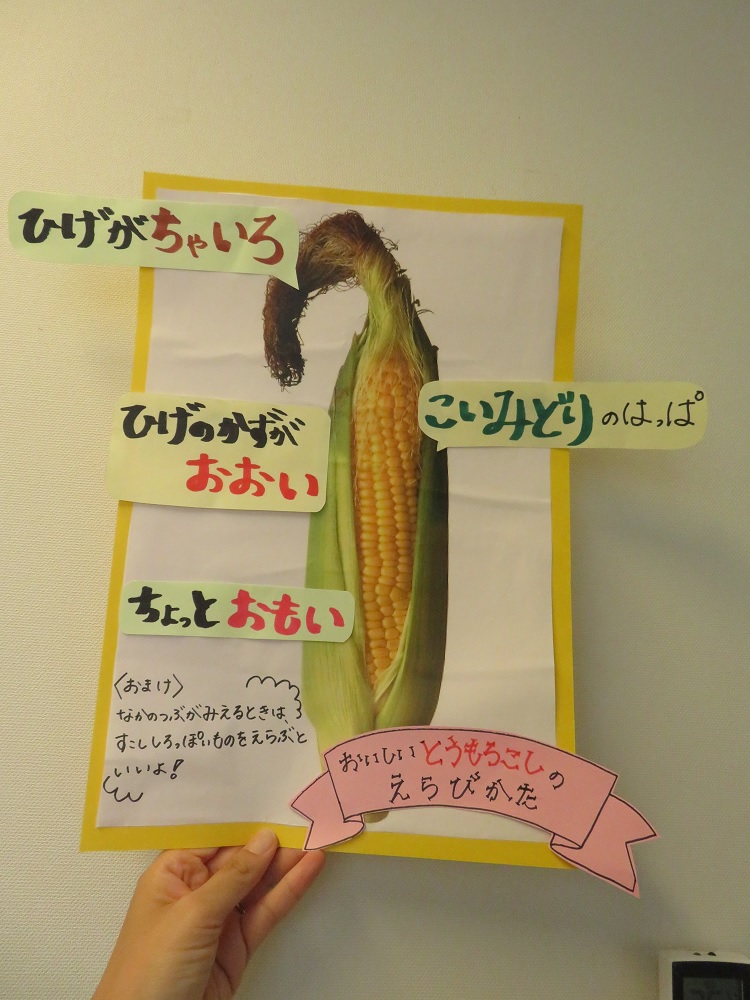 ひげがちゃいろ
ひげのかずが
おおい
こいみどりのはっぱ
ちょっとおもい
〈おまけ〉
なかのつぶがみえるときは、
すこししろっぽいものをえらぶと
いいよ!
おいしいとうもろこしの
えらびかた